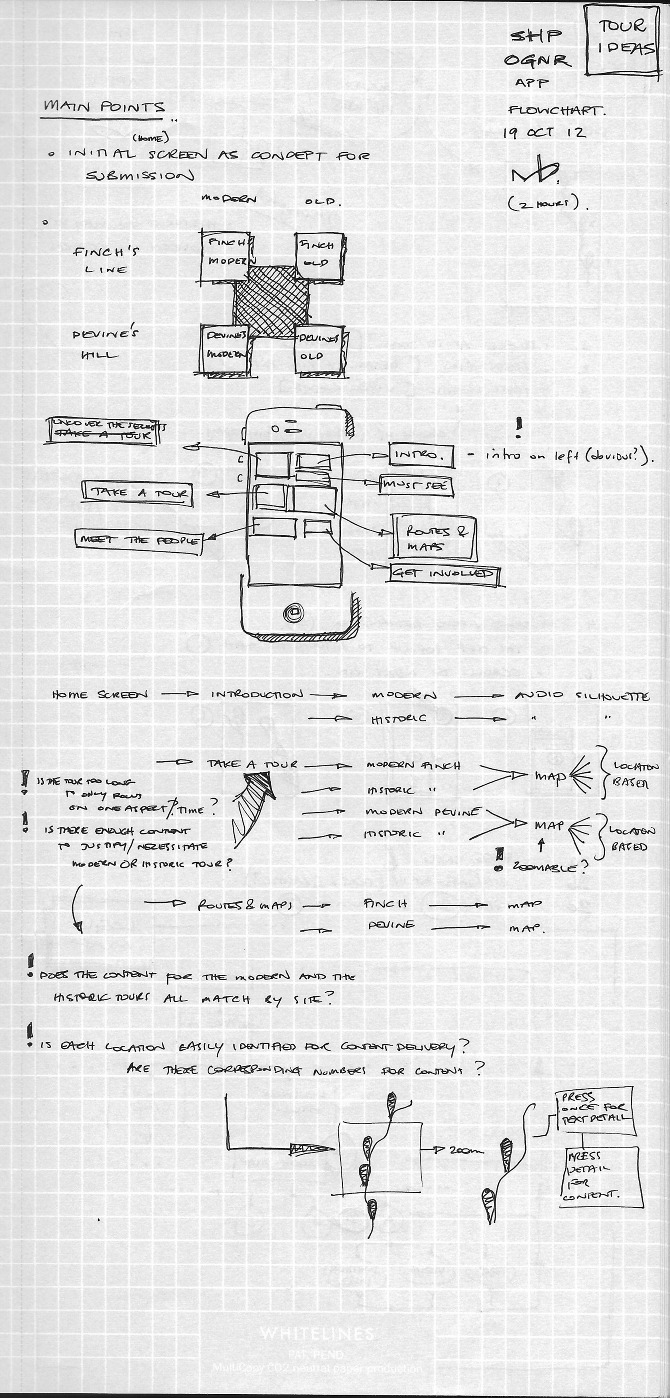 TOUR
IDEAS
SHP
OGNR
APP
FLOWCHART.
19 OCT 12
(2 HOURS).
MAIN POINTS
(HOME)
INITIAL SCREEN AS CONCEPT FOR
SUBMISSION
MODERN OLD.
FINCH'S
LINE
FINCH
MODERN
FINCH
OLD
DEVINE'S
HILL
DEVINES
MODERN
DEVINES
OLD
UNCOVER THE SECRETS
TAKE A TOUR
INTRO. - intro on left (obvious?).
!
C
C
TAKE A TOUR
MUST SEE
MEET THE PEOPLE
ROUTES &
MAPS
GET INVOLVED
HOME SCREEN → INTRODUCTION → MODERN → AUDIO SILHOUETTE
→ HISTORIC → " "
→ TAKE A TOUR → MODERN FINCH
→ HISTORIC "
→ MAP
LOCATON
BASED
→ MODERN DEVINE
→ HISTORIC "
→ MAP
LOCATON
BASED
! ZOOMABLE?
! IS THE TOUR TOO LONG
TO ONLY FOCUS
ON ONE ASPECT/TIME?
! IS THERE ENOUGH CONTENT
TO JUSTIFY/NECESSITATE
MODERN OR HISTORIC TOUR?
→ ROUTES & MAPS → FINCH → MAP
→ DEVINE → MAP.
! DOES THE CONTENT FOR THE MODERN AND THE
HISTORIC TOURS ALL MATCH BY SITE?
! IS EACH LOCATION EASILY IDENTIFIED FOR CONTENT DELIVERY?
ARE THERE CORRESPONDING NUMBERS FOR CONTENT?
→ zoom
PRESS
ONCE FOR
TEXT DETAIL
PRESS
DETAIL
FOR
CONTENT.
WHITELINES
PAT. PEND.